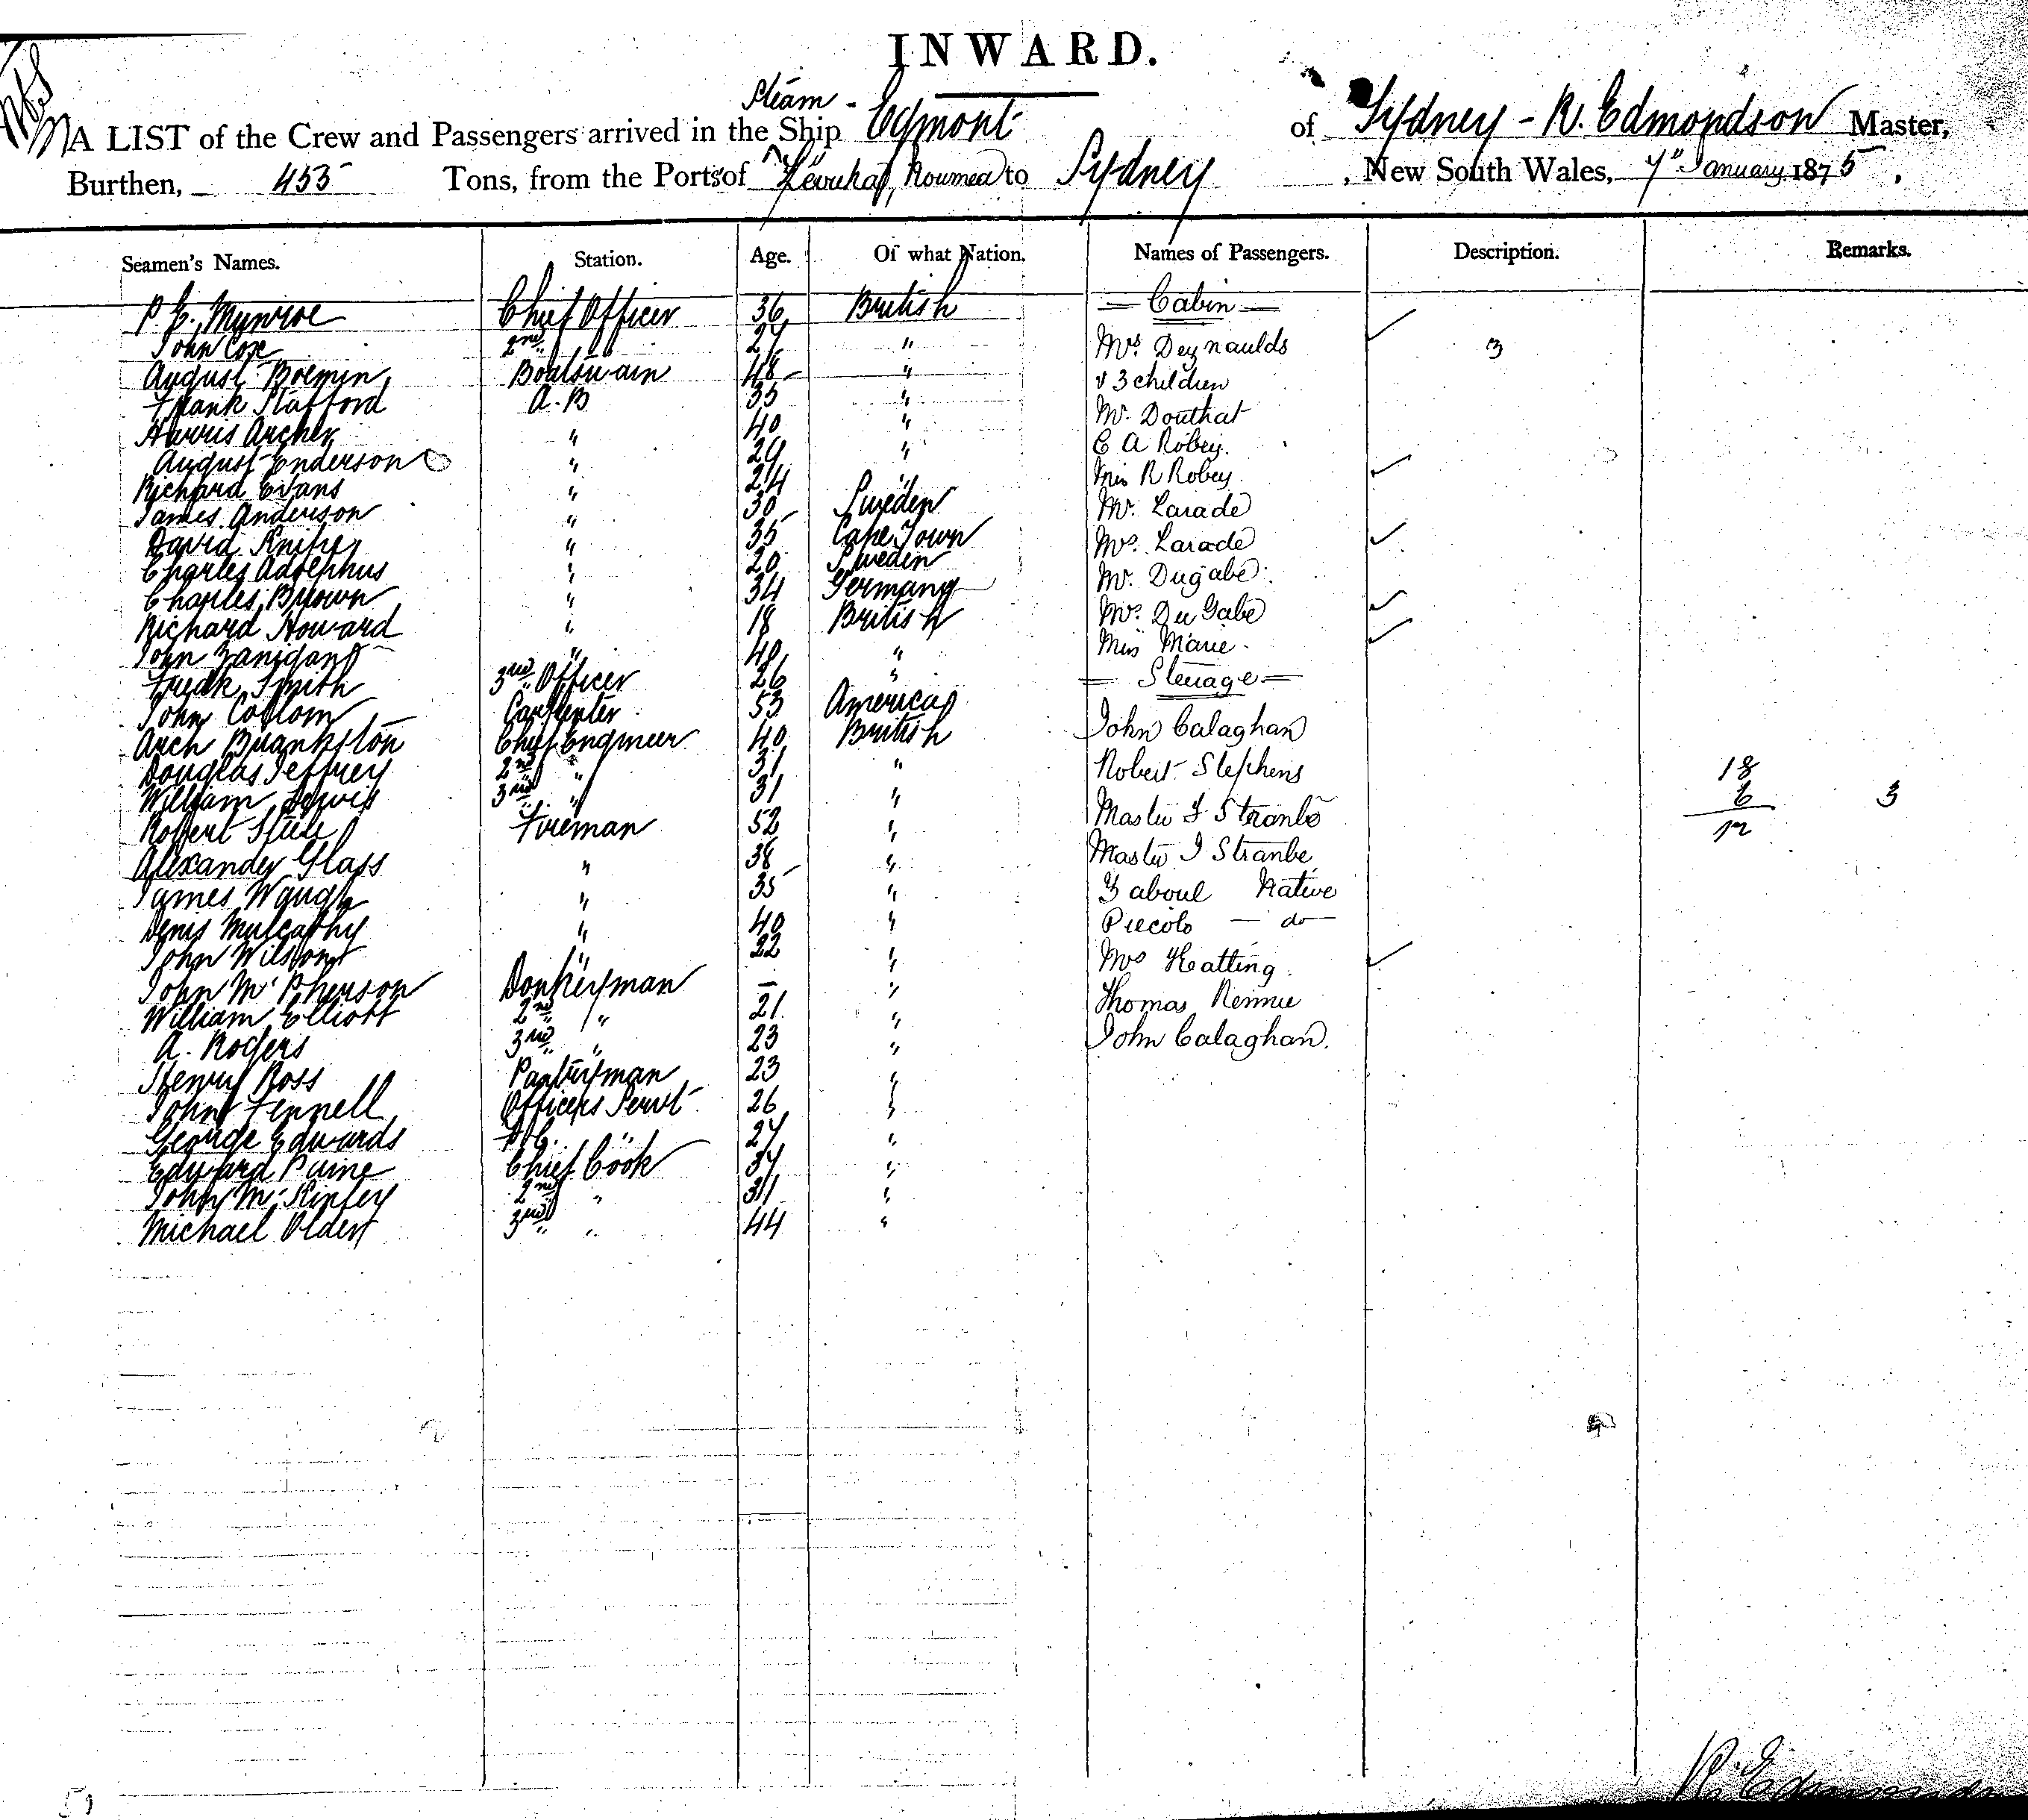 INWARD.
Steam - Egmont
A LIST of the Crew and Passengers arrived in the Ship Egmont of Sydney - R. Edmondson Master,
Burthen, 453 Tons, from the Ports of Noumea to Sydney, New South Wales, 7" January 1875.
Seamen's Names. Station. Age. Of what Nation. Names of Passengers. Description. Remarks.
P. E. Munroe Chief Officer 36 British — Cabin —
John Cox 2nd " 27 " Mrs. Deynaulds 3
August Boemin Boatswain 48 " & 3 children
Frank Stafford A.B 35 " Mr. Douthat
Harris Archer " 40 " E A Robey.
August Enderson " 29 "
Richard Evans " 24 " Miss R Robey
James Anderson " 30 Sweden Mr. Larade
David " 35 Cape Town Mrs. Larade
Charles Adolphus " 20 Sweden Mr. Dugabé
Charles Brown " 34 Germany
Richard Howard " 18 British Mrs. Du Gabé
John " 40 " Miss Marie
Fredk Smith 3rd Officer 26 " — Steerage —
John Collom Carpenter 53 America
Arch Brankston Chief Engineer 40 British John Calaghan
Douglas Jeffrey 2nd " 31 " Robert Stephens 18
William Lewis 3rd " 31 " 6 3
Robert Steele Fireman 52 " Master F Stranbe 12
Alexander Glass " 38 " Master J Stranbe
James Waugh " 35 " Zaboul Native
Denis Mulcathy " 40 " Piccolo — do —
John Wilson " 22 " Mrs Keatting
John McPherson Donkeyman — "
William Elliott 2nd " 21 " Thomas Rennie
A. Rogers 3rd " 23 " John Calaghan.
Henry Ross Pantryman 23 "
John Fennell Officers Servt 26 "
George Edwards " 27 "
Edward Paine Chief Cook 37 "
John McKinley 2nd " 31 "
Michael Olden 3rd " 44 "
R. Edmondson